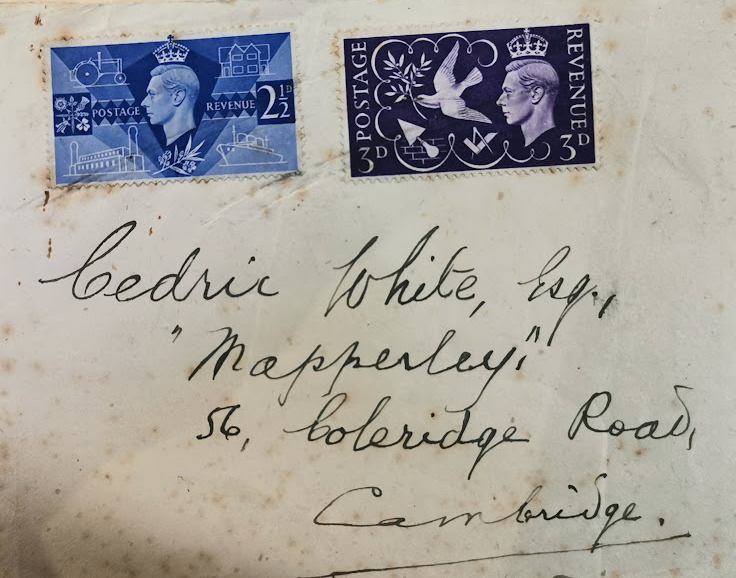 POSTAGE REVENUE 2½D
POSTAGE
REVENUE
3D 3D
Cedric White, Esq.,
"Mapperley,"
56, Coleridge Road,
Cambridge.